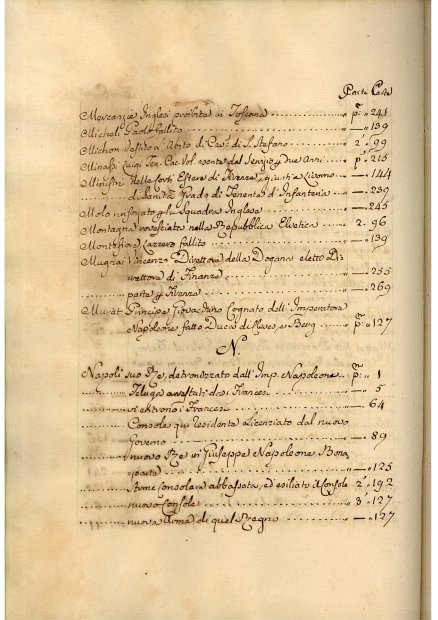 Parte Carte
Mercanzie Inglesi proibite in Toscana p.ª 241
Micheli Paolo fallito 139
Michon vestito a' Abito di Cav. di S. Stefano 2. 99
Minassi Luigi Ten. Cac. Vol. esente dal Servizio p due Anni p.ª 215
Ministri delle Corti Estere di Firenze, giunti a Livorno 144
di Sanità Grado di Tenente d'Infanteria 239
Molo rinforzato p la Squadra Inglese 245
Montagna rovesciata nella Repubblica Elvetica 2. 96
Carrero fallito 139
Mugnai Vincenzo Direttore della Dogana eletto Di
rettore di Finanze 255
parte p Firenze 269
Murat Principe Giovacchino Cognato dell' Imperatore
Napoleone, fatto Duca di Cleves, e Berg p.ª 127
N.
Napoli suo Rè, detronizzato dall' Imp. Napoleone p.ª 1
Feluga arrestati dai Francesi 5
vi entrono i Francesi 64
Console qui residente Licenziato dal nuovo
Governo 89
nuovo Rè in Giuseppe Napoleone Bona
parte 125
Arme Consolare abbassata, ed esiliato il Console 2.ª 192
nuovo Console 3.ª 127
nuova Arme di quel Regno 127